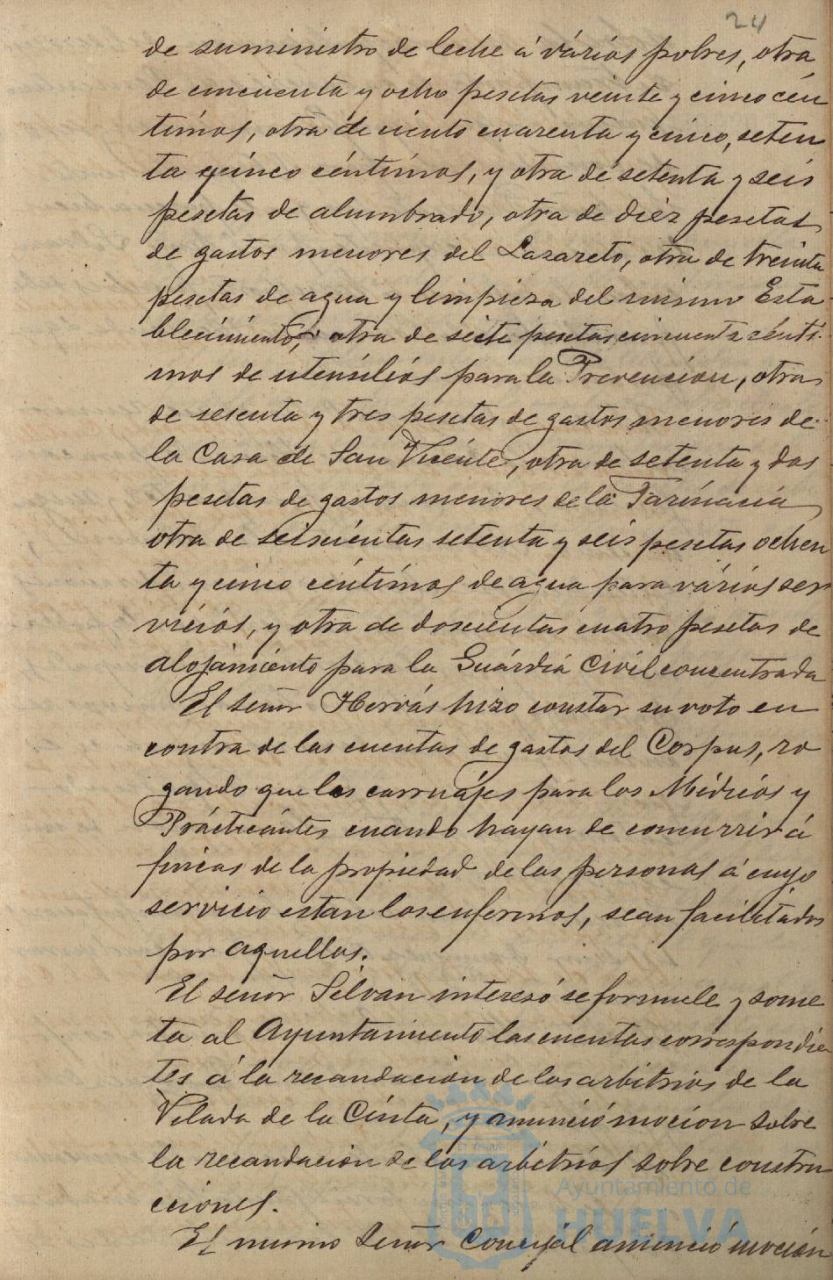 24
de suministro de leche á vários pobres, otra
de cincuenta y ocho pesetas veinte y cinco cén
timos, otra de ciento cuarenta y cinco, seten
ta y cinco céntimos, y otra de setenta y seis
pesetas de alumbrado, otra de diéz pesetas
de gastos menores del Lazareto, otra de treinta
pesetas de agua y limpieza del mismo Esta
blecimiento, otra de siete pesetas cincuenta cénti-
mos de utensílios para la Prevencion, otra
de sesenta y tres pesetas de gastos menores de
la Casa de San Vicente, otra de setenta y dos
pesetas de gastos menores de la Farmacia
otra de seiscientas setenta y seis pesetas ochen
ta y cinco céntimos de agua para vários ser
vicios, y otra de doscientas cuatro pesetas de
alojamiento para la Guárdia Civil concentrada
El señor Hervás hizo constar su voto en
contra de las cuentas de gastos del Corpus, ro
gando que los carruajes para los Médicos y
Prácticantes cuando hayan de concurrir á
fincas de la propiedad de las personas á cuyo
servicio estan los enfermos, sean facilitados
por aquellas.
El señor Silvan interesó se formule y some
ta al Ayuntamiento las cuentas correspondien
tes á la recaudacion de los arbitrios de la
Velada de la Cinta, y anunció mocion sobre
la recaudacion de los arbitrios sobre constru
cciones.
El mismo Señor Concejal anunció mocion
Ayuntamiento de
HUELVA